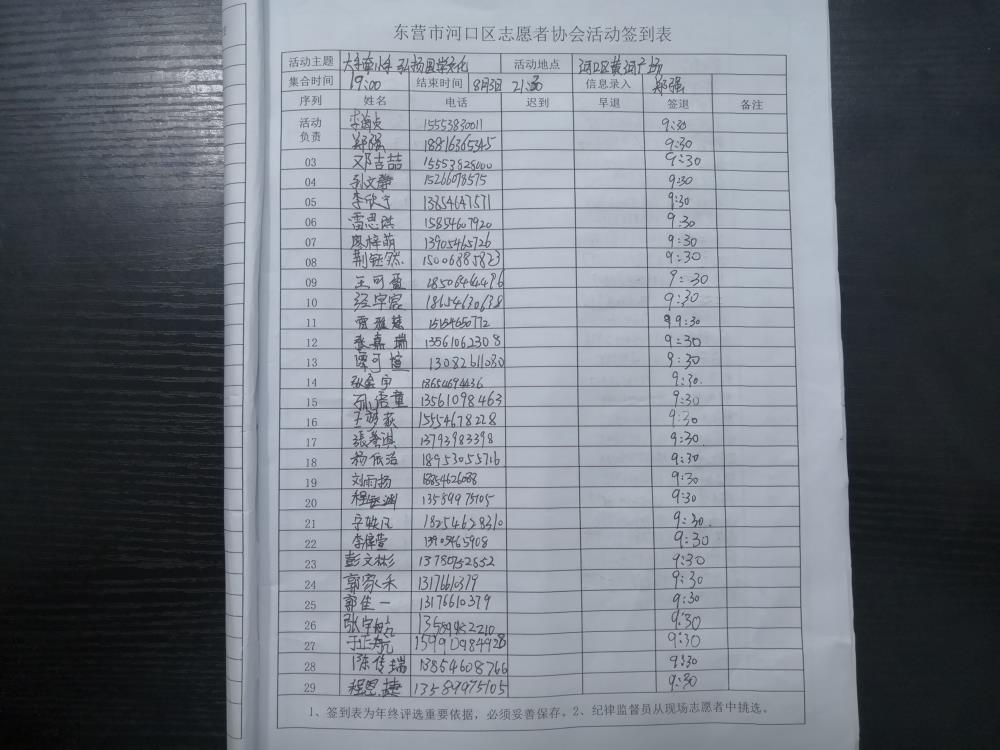 东营市河口区志愿者协会活动签到表
活动主题 弘扬国学文化 活动地点 河口区黄河广场
集合时间 19:00 结束时间 8月3日 21:30 信息录入 郑强
序列 姓名 电话 迟到 早退 签退 备注
活动负责 15553830011 9:30
郑强 18816365345 9:30
03 邓吉喆 15553828000 9:30
04 孙文静 15266078575 9:30
05 李欣宁 13854647571 9:30
06 雷思琪 15854607920 9:30
07 廖梓萌 13905465726 9:30
08 荆钰然 15006885823 9:30
09 王可 18506444496 9:30
10 宇宸 18654630638 9:30
11 雅慧 15154650772 9:30
12 张嘉瑞 13561062308 9:30
13 覃可煊 13082611080 9:30
14 张宇 13654694436 9:30.
15 孙语童 13561098463 9:30
16 王梦荻 15554678228 9:30
17 張馨淇 13793983398 9:30.
18 杨依诺 18953055716 9:30
19 刘雨扬 18854626088 9:30
20 程 13589975105 9:30
21 宁轶凡 18254628310 9:30.
22 李梓萱 13905465908 9:30
23 彭文彬 13780752852 9:30
24 郭家禾 13176610379 9:30
25 郭佳一 13176610379 9:30
26 张宇皓 13589952210 9:30
27 于正尧 15990984928 9:30
28 陈传瑞 13854608766 9:30
29 程恩捷 13589975105 9:30
1、签到表为年终评选重要依据，必须妥善保存。2、纪律监督员从现场志愿者中挑选。